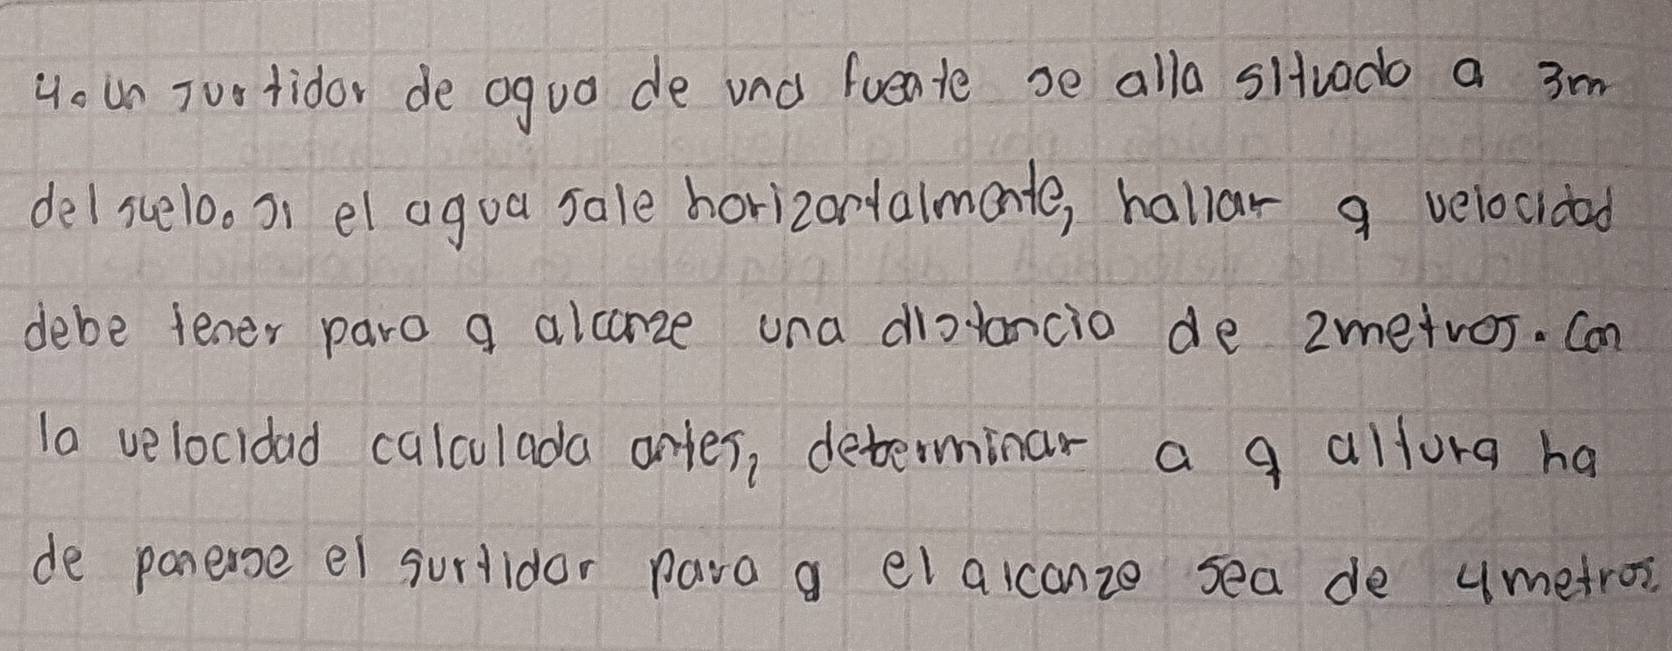 4. un surtidor de agua de una fuente se alla situado a 3m
del suelo. si el agua sale horizontalmente, hallar q velocidad
debe tener para q alcanze una distancia de 2metros. Con
la velocidad calculada antes, determinar a q altura ha
de ponerse el surtidor para q el alcanze sea de 4metros